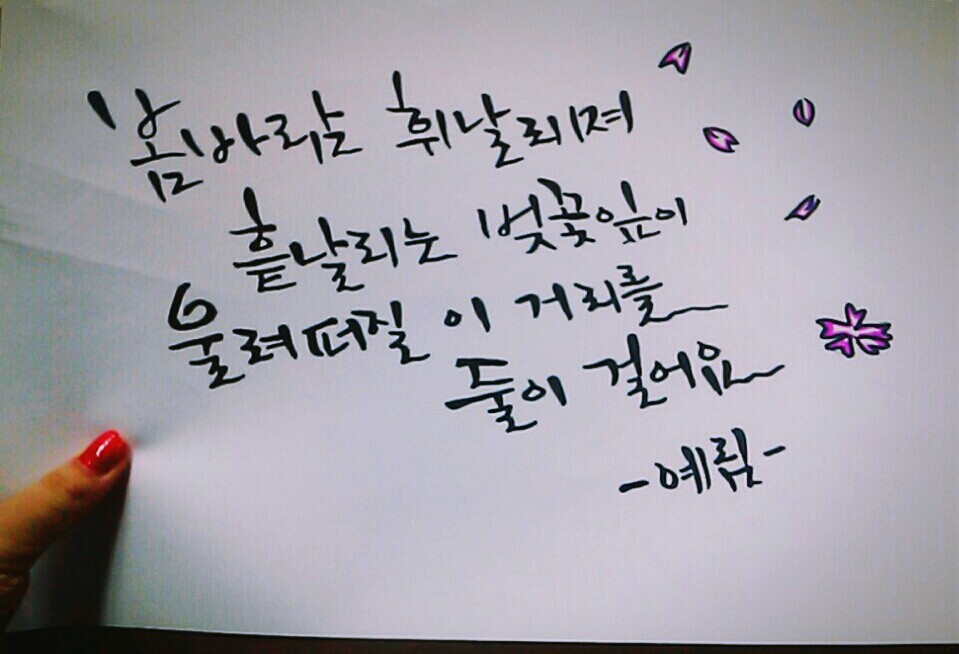 봄바람 휘날리며
흩날리는 벚꽃잎이
울려퍼질 이 거리를
둘이 걸어요
-예림-